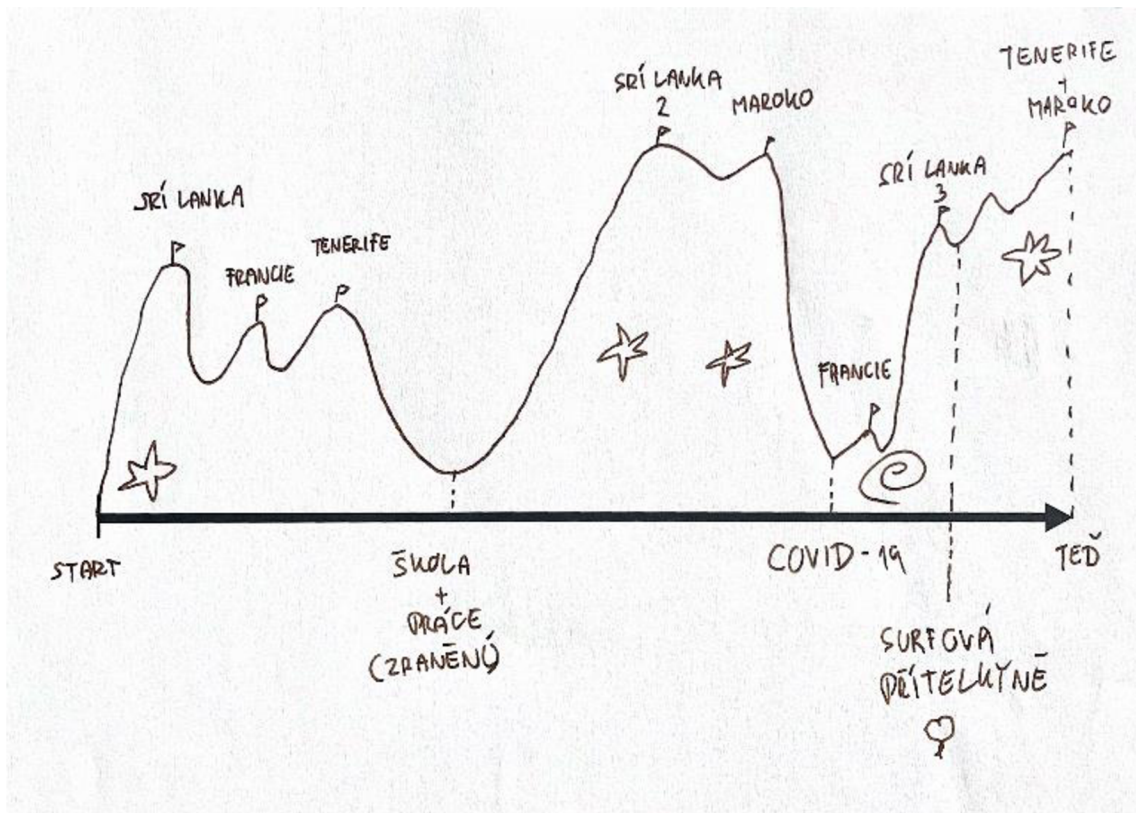 SRÍ LANKA
FRANCIE
TENERIFE
SRÍ LANKA
2
MAROKO
FRANCIE
SRÍ LANKA
3
TENERIFE
+
MAROKO
START
ŠKOLA
+
PRÁCE
(ZRANĚNÍ)
COVID-19
SURFOVÁ
PŘÍTELKYNĚ
TEĎ